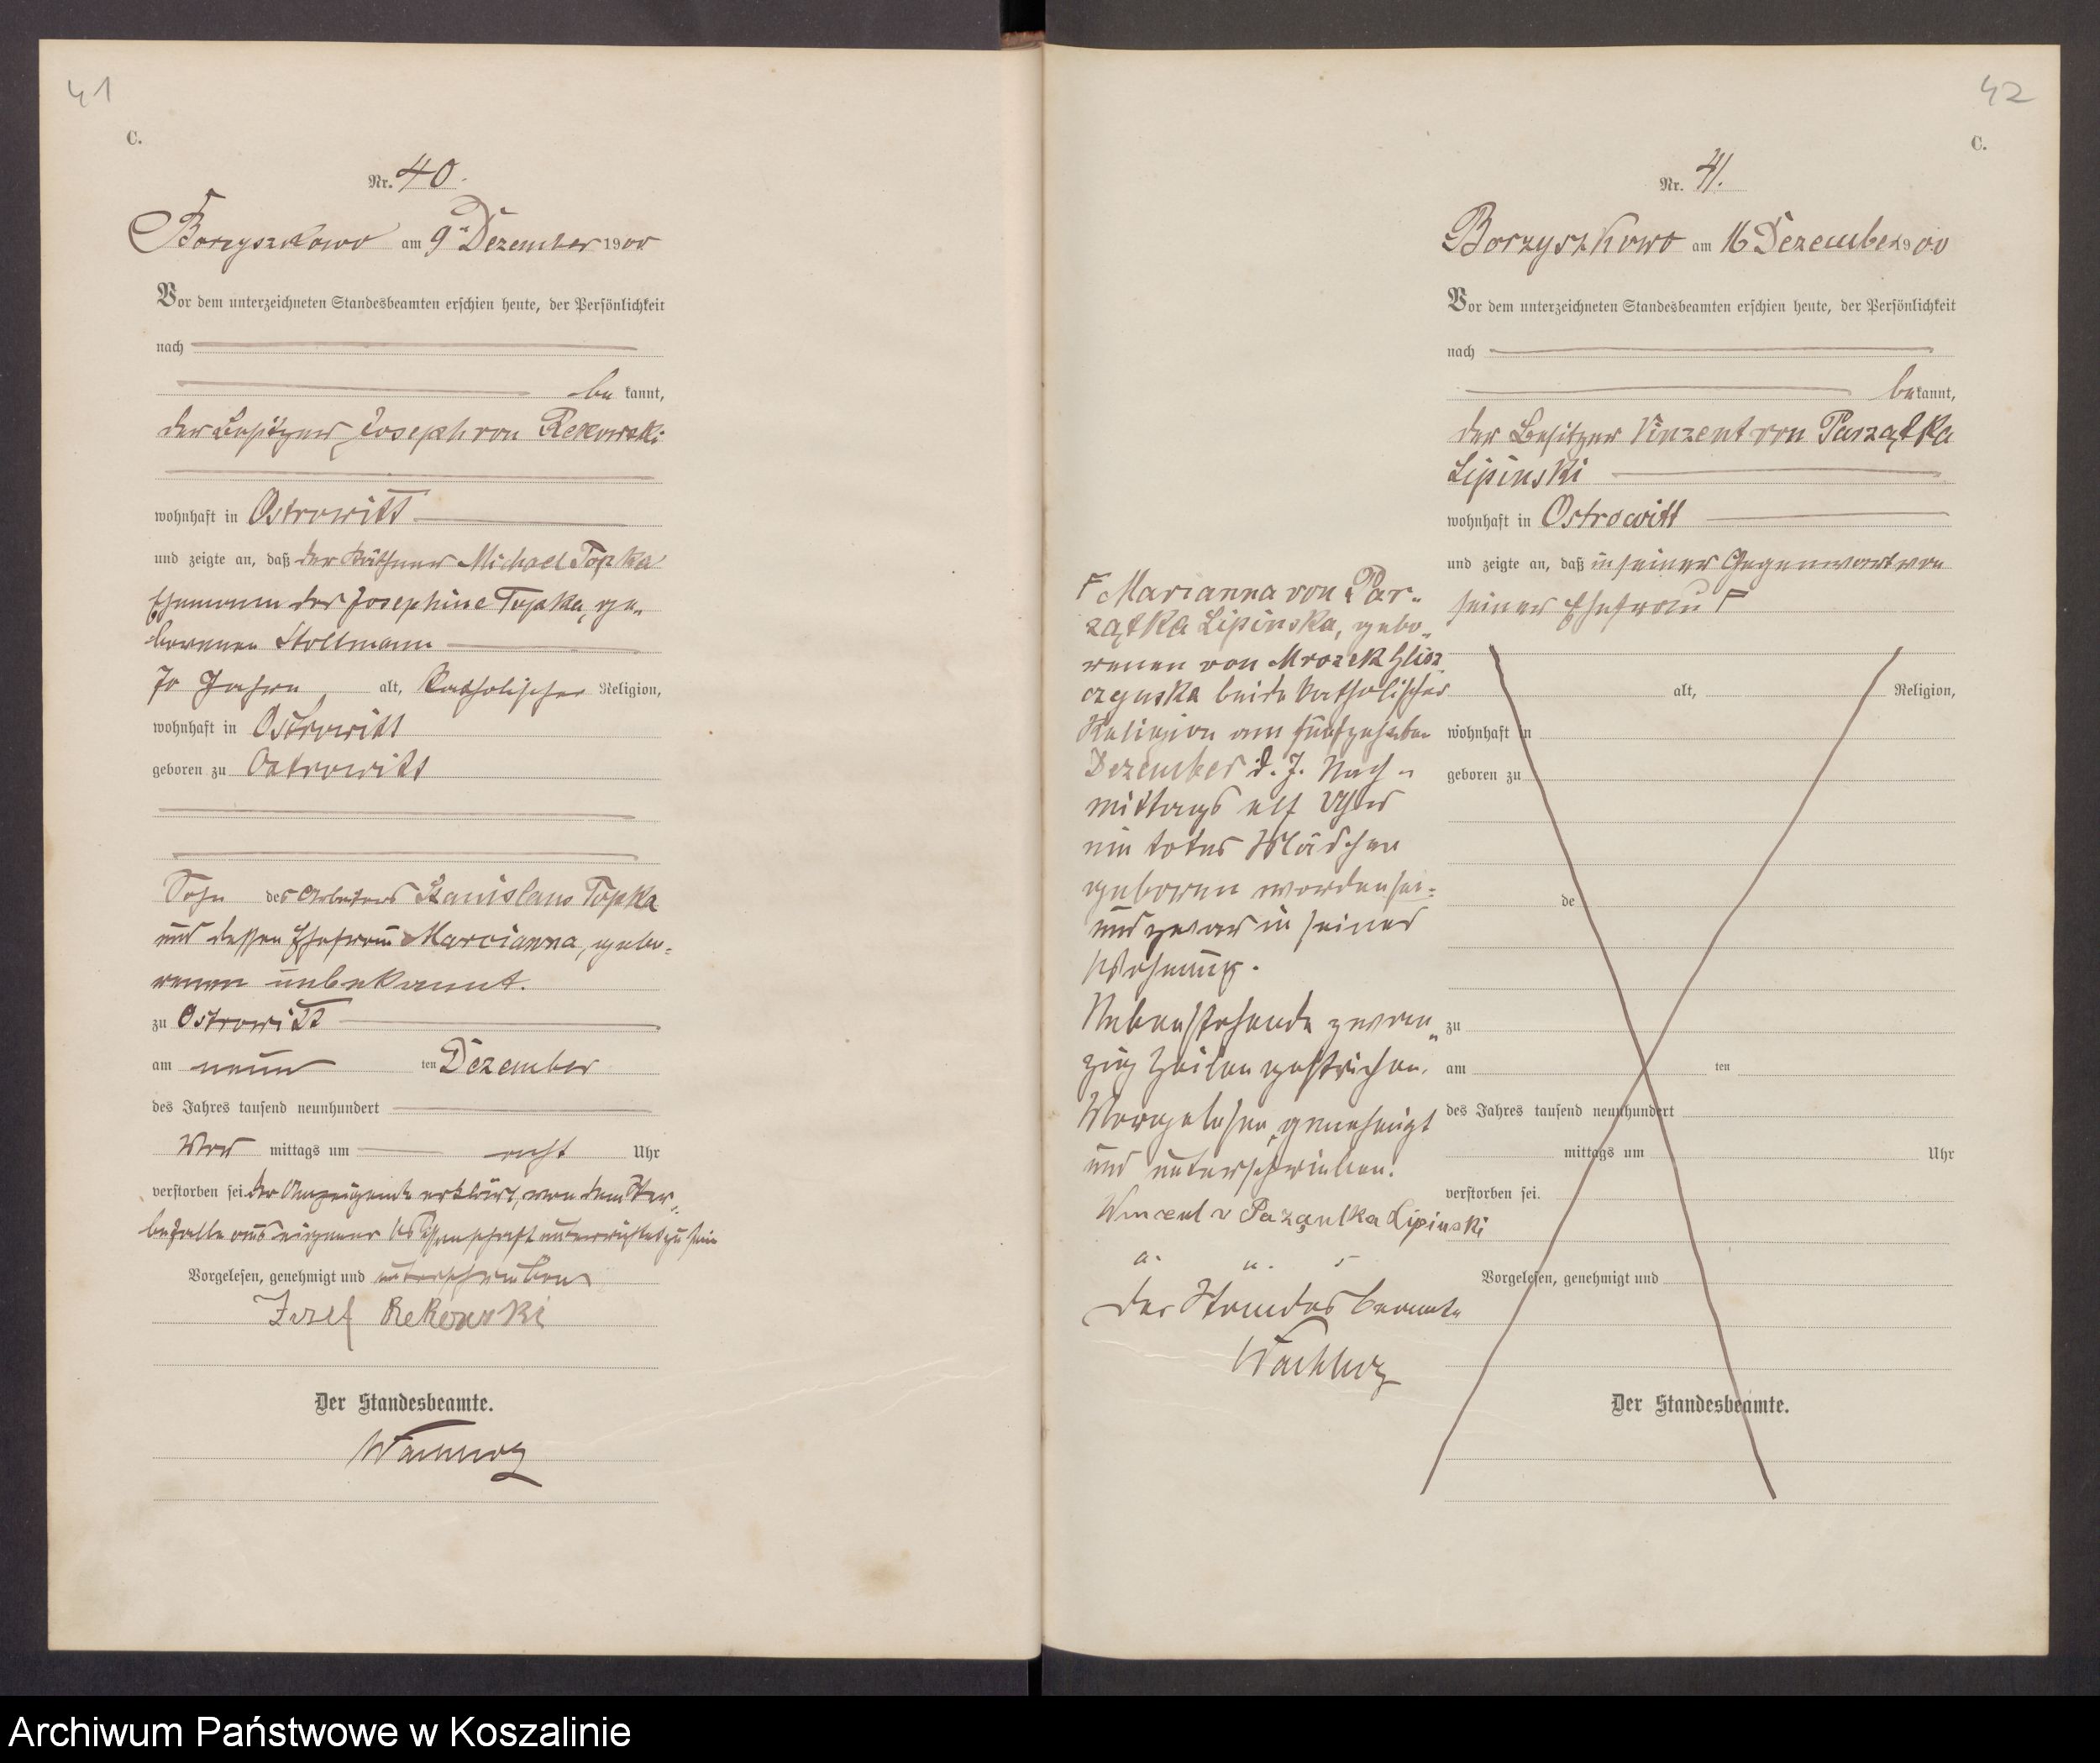 41
C.
Nr. 40.
Borzyszkowo am 9 Dezember 1900
Vor dem unterzeichneten Standesbeamten erschien heute, der Persönlichkeit
nach
be kannt,
der Besitzer Joseph von Rekowski
wohnhaft in Ostrowitt
und zeigte an, daß der Käthner Michael Topka
Ehemann der Josephine Topka, ge„
borenen Stoltmann
70 Jahre alt, katholischer Religion,
wohnhaft in Ostrowitt
geboren zu Ostrowitt
Sohn des Arbeiters Stanislaus Topka
und dessen Ehefrau Marianna, gebo=
renen unbekannt.
zu Ostrowitt
am neun ten Dezember
des Jahres tausend neunhundert
Vor mittags um acht Uhr
verstorben sei der Anzeigende erklärt, von dem Ster„
befalle aus eigener Wissenschaft unterrichtet zu sein
Vorgelesen, genehmigt und unterschrieben
Jozef Rekowski
Der Standesbeamte.
42
C.
Nr. 41.
Borzyszkowo am 16 Dezember 1900
Vor dem unterzeichneten Standesbeamten erschien heute, der Persönlichkeit
nach
be kannt,
der Besitzer Vinzent von Parzątka
Lipinski
wohnhaft in Ostrowitt
und zeigte an, daß in seiner Gegenwart von
seiner Ehefrau F
F Marianna von Par„
zątka Lipinska, gebo„
renen von Mrozek Glisz
czynska beide katholischer
Religion am fünfzehnten
Dezember d. J. Nach„
mittags elf Uhr
ein totes Mädchen
geboren worden sei=
und zwar in seiner
Wohnung.
Nebenstehende zwan„
zig Zeilen gestrichen.
Vorgelesen, genehmigt
und unterschrieben.
Wincent v Pazantka Lipinski
a. u. s
Der Standesbeamte
alt, Religion,
wohnhaft in
geboren zu
de
zu
am ten
des Jahres tausend neunhundert
mittags um Uhr
verstorben sei.
Vorgelesen, genehmigt und
Der Standesbeamte.
Archiwum Państwowe w Koszalinie